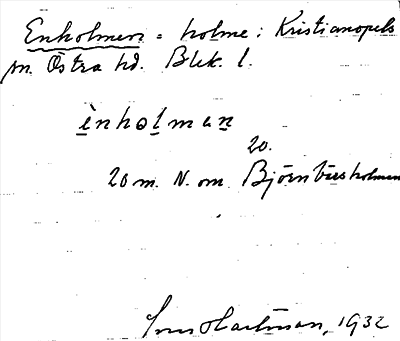 Enholmen = holme i Kristianopels
sn. Östra hd. Blek. l.
ènholman
20.
20 m. N. om Björnbärsholmen
Hartman, 1932